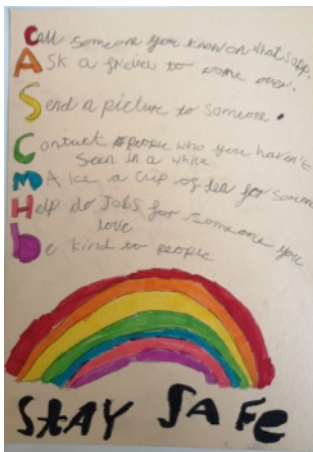 Call someone you know on Whatsapp.
Ask a freind to come over.
Send a picture to someone.
Contact people who you haven't
seen in a while
MAke a cup of tea for someone
Help do Jobs for someone you
love
be kind to people
STAY SAFe